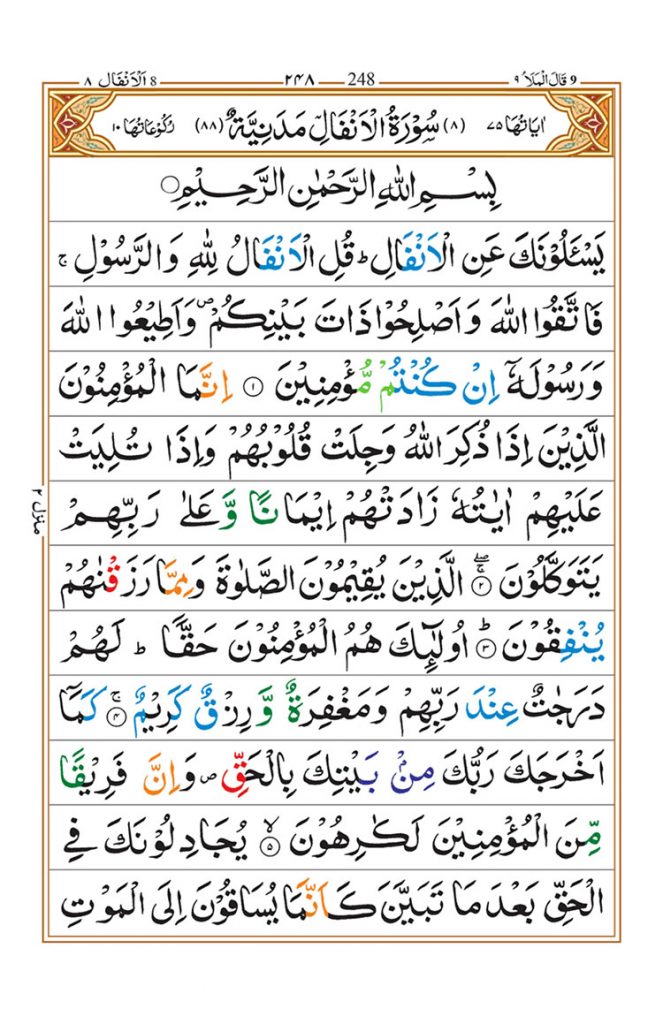 قَالَ الْمَلَاُ ٩ 9
248 ٢٤٨
اَلْاَنْفَال ٨ 8
اٰيَاتُهَا ٧٥ (٨) سُوْرَةُ الْاَنْفَالِ مَدَنِيَّةٌ (٨٨) رُكُوْعَاتُهَا ١٠
بِسْمِ اللّٰهِ الرَّحْمٰنِ الرَّحِيْمِ
يَسْـَٔلُوْنَكَ عَنِ الْاَنْفَالِ ؕ قُلِ الْاَنْفَالُ لِلّٰهِ وَالرَّسُوْلِ ۚ
فَاتَّقُوا اللّٰهَ وَاَصْلِحُوْا ذَاتَ بَيْنِكُمْ ۪ وَاَطِيْعُوا اللّٰهَ
وَرَسُوْلَهٗۤ اِنْ كُنْتُمْ مُّؤْمِنِيْنَ ۝١ اِنَّمَا الْمُؤْمِنُوْنَ
الَّذِيْنَ اِذَا ذُكِرَ اللّٰهُ وَجِلَتْ قُلُوْبُهُمْ وَاِذَا تُلِيَتْ
عَلَيْهِمْ اٰيٰتُهٗ زَادَتْهُمْ اِيْمَانًا وَّعَلٰى رَبِّهِمْ
يَتَوَكَّلُوْنَ ۝٢ الَّذِيْنَ يُقِيْمُوْنَ الصَّلٰوةَ وَمِمَّا رَزَقْنٰهُمْ
يُنْفِقُوْنَ ۝٣ؕ اُولٰٓئِكَ هُمُ الْمُؤْمِنُوْنَ حَقًّا ؕ لَهُمْ
دَرَجٰتٌ عِنْدَ رَبِّهِمْ وَمَغْفِرَةٌ وَّرِزْقٌ كَرِيْمٌ ۝٤ۚ كَمَاۤ
اَخْرَجَكَ رَبُّكَ مِنْۢ بَيْتِكَ بِالْحَقِّ ۪ وَاِنَّ فَرِيْقًا
مِّنَ الْمُؤْمِنِيْنَ لَكٰرِهُوْنَ ۝٥ۙ يُجَادِلُوْنَكَ فِى
الْحَقِّ بَعْدَ مَا تَبَيَّنَ كَاَنَّمَا يُسَاقُوْنَ اِلَى الْمَوْتِ
منزل ٢